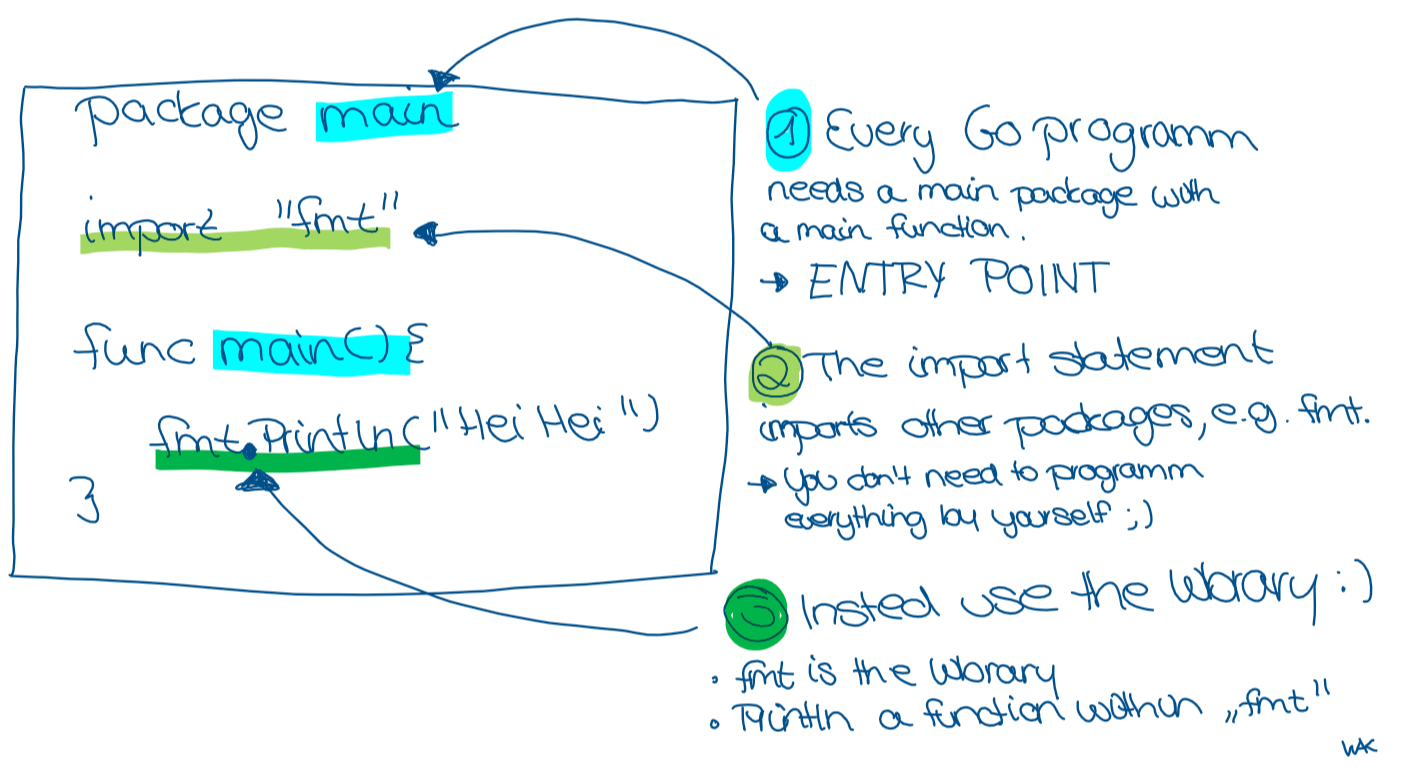 package main
import "fmt"
func main() {
fmt.Println("Hei Hei")
}
① Every Go programm
needs a main package with
a main function.
→ ENTRY POINT
② The import statement
imports other packages, e.g. fmt.
→ You don't need to programm
everything by yourself ;)
③ Insted use the library :)
• fmt is the library
• Println a function within „fmt"